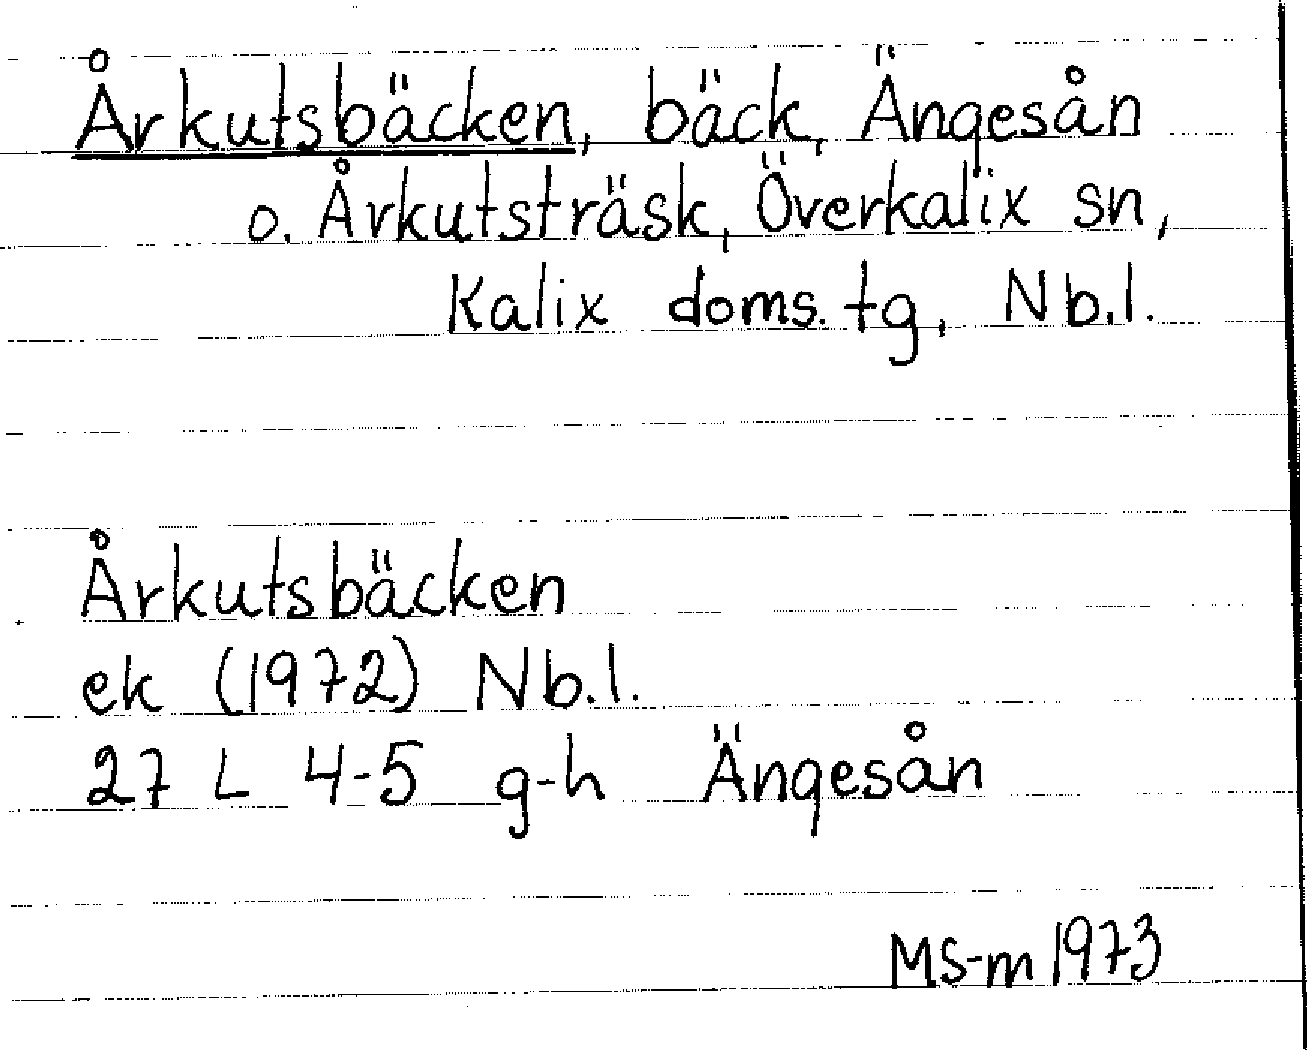 Årkutsbäcken, bäck, Ängesån
o. Årkutsträsk, Överkalix sn,
Kalix doms. tg, Nb.l.
Årkutsbäcken
ek (1972) Nb.l.
27 L 4-5 g-h Ängesån
MS-m 1973